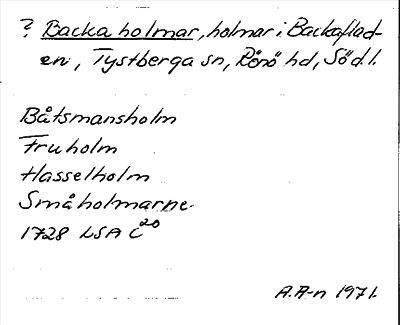 ? Backa holmar, holmar i Backaflad-
en, Tystberga sn, Rönö hd, Södl.
Båtsmansholm
Fruholm
Hasselholm
Småholmarne
1728 LSA C20
A.A-n 1971.